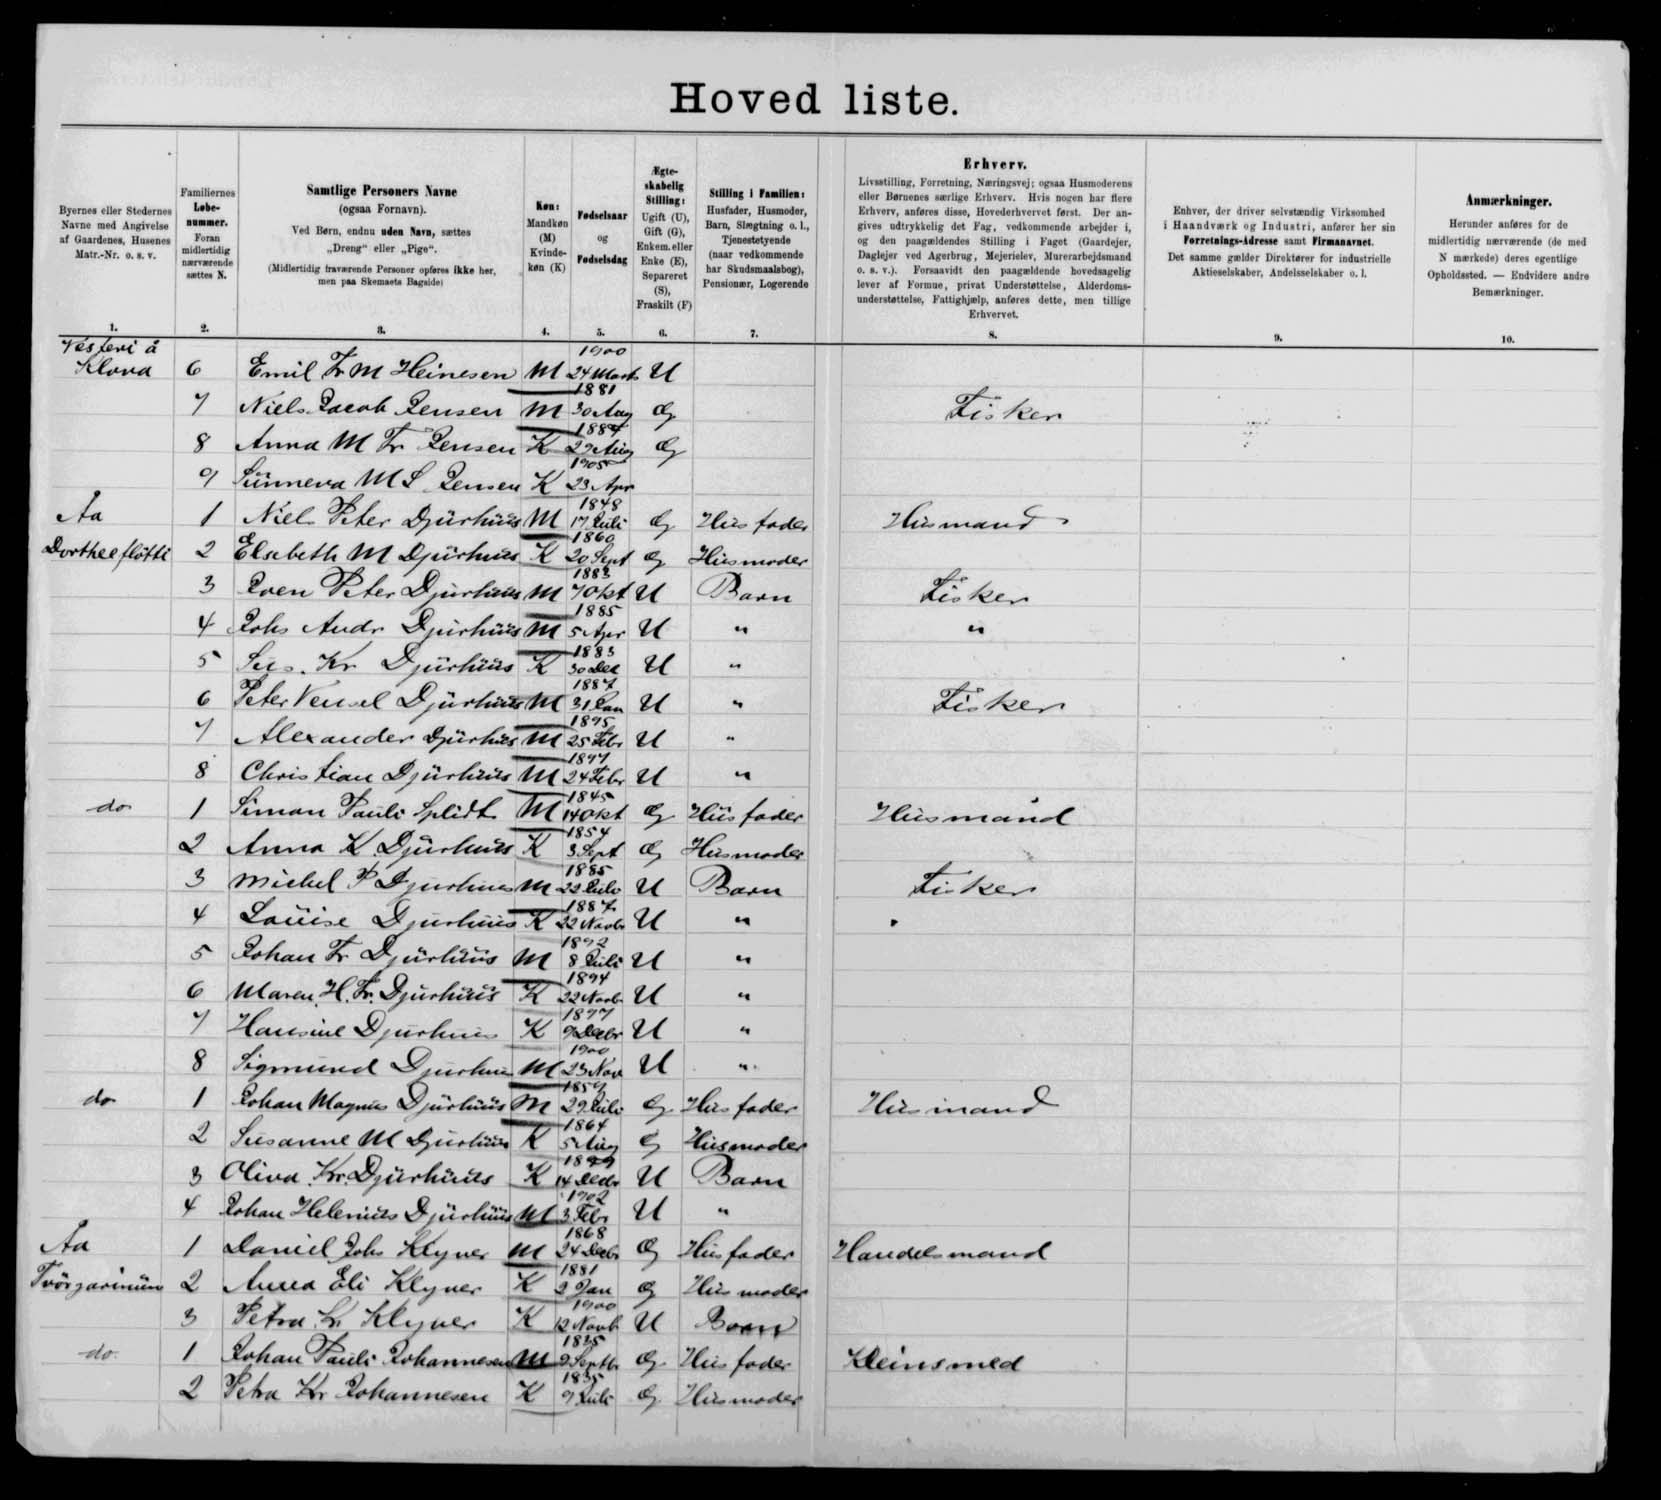 Hoved liste.
Byernes eller Stedernes
Navne med Angivelse
af Gaardenes, Husenes
Matr.-Nr. o. s. v.
1.
Familiernes
Løbe-
nummer.
Foran
midlertidig
nærværende
sættes N.
2.
Samtlige Personers Navne
(ogsaa Fornavn).
Ved Børn, endnu uden Navn, sættes
„Dreng“ eller „Pige“.
(Midlertidig fraværende Personer opføres ikke her,
men paa Skemaets Bagside)
3.
Køn:
Mandkøn
(M)
Kvinde-
køn (K)
4.
Fødselsaar
og
Fødselsdag
5.
Ægte-
skabelig
Stilling:
Ugift (U),
Gift (G),
Enkem. eller
Enke (E),
Separeret
(S),
Fraskilt (F)
6.
Stilling i Familien:
Husfader, Husmoder,
Barn, Slægtning o. l.,
Tjenestetyende
(naar vedkommende
har Skudsmaalsbog),
Pensionær, Logerende
7.
Erhverv.
Livsstilling, Forretning, Næringsvej; ogsaa Husmoderens
eller Børnenes særlige Erhverv. Hvis nogen har flere
Erhverv, anføres disse, Hovederhvervet først. Der an-
gives udtrykkelig det Fag, vedkommende arbejder i,
og den paagældendes Stilling i Faget (Gaardejer,
Daglejer ved Agerbrug, Mejerielev, Murerarbejdsmand
o. s. v.). Forsaavidt den paagældende hovedsagelig
lever af Formue, privat Understøttelse, Alderdoms-
understøttelse, Fattighjælp, anføres dette, men tillige
Erhvervet.
8.
Enhver, der driver selvstændig Virksomhed
i Haandværk og Industri, anfører her sin
Forretnings-Adresse samt Firmanavnet.
Det samme gælder Direktører for industrielle
Aktieselskaber, Andelsselskaber o. l.
9.
Anmærkninger.
Herunder anføres for de
midlertidig nærværende (de med
N mærkede) deres egentlige
Opholdssted. — Endvidere andre
Bemærkninger.
10.
Vesteri á
Klova 6 Emil Fr M Heinesen M 1900 24 Marts U
7 Niels Jacob Jensen M 1881 30 Aug G Fisker
8 Anna M Fr Jensen K 1884 29 Aug G
9 Sünneva M S Jensen K 1905 23 Apr
Aa 1 Niels Peter Djürhüüs M 1848 17 Juli G Husfader Husmand
2 Elsebeth M Djürhuus K 1860 20 Sept G Husmoder
3 Joen Peter Djurhuus M 1883 7 Okt U Barn Fisker
4 Johs Andr Djürhüüs M 1885 5 Apr U " "
5 Sus. Kr Djürhüüs K 1883 30 Dec U "
6 Peter Vensel Djürhuus M 1887 31 Jan U " Fisker
7 Alexander Djürhus M 1895 25 Febr U "
8 Christian Djürhuus M 1897 24 Febr U "
do 1 Simon Pauli Splidt M 1845 14 Okt G Husfader Husmand
2 Anna K Djürhuus K 1854 3 Sept G Husmoder
3 Michel P Djurhuus M 1885 22 Juli U Barn Fisker
4 Louise Djurhuus K 1887 22 Novbr U "
5 Johan Fr Djürhüüs M 1892 8 Juli U "
6 Maren H. Fr. Djurhuus K 1894 22 Novbr U "
7 Hansine Djurhuus K 1897 9 Decbr U "
8 Sigmund Djurhuus M 1900 23 Nov U "
do 1 Johan Magnus Djürhuus M 1859 29 Juli G Husfader Husmand
2 Susanne M Djurhuus K 1864 5 Aug G Husmoder
3 Oliva Kr. Djürhuus K 1899 14 Decbr U Barn
4 Johan Helenius Djürhüüs M 1902 3 Febr U "
Aa 1 Daniel Johs Klyver M 1868 24 Decbr G Husfader Handelsmand
2 Anna Eli Klyver K 1881 2 Jan G Husmoder
3 Petra Kr Klyver K 1900 12 Novb U Barn
do 1 Johan Pauli Johannesen M 1835 2 Septbr G Husfader Kleinsmed
2 Petra Kr Johannesen K 1835 9 Juli G Husmoder